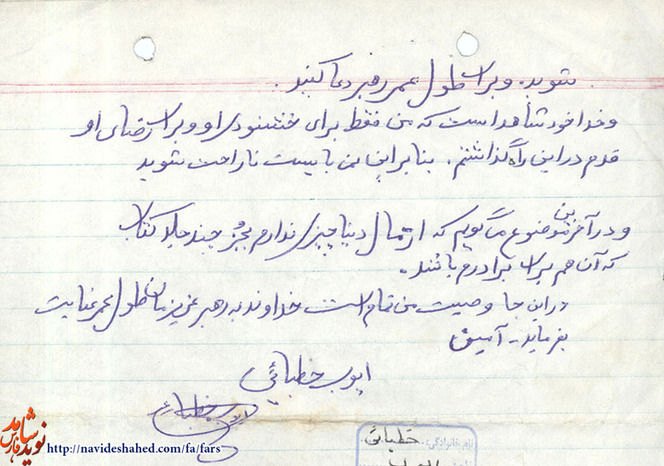 شوید. و برای طول عمر رهبر دعا کنید.
و خدا خود شاهد است که من فقط برای خشنودی او و برای رضای او
قدم در این راه گذاشتم. بنابراین نمی بایست ناراحت شوید
و در آخرین موضوع میگویم که از مال دنیا چیزی ندارم بجز چند جلد کتاب
که آن هم برای برادرم باشد.
در این جا وصیت من تمام است خداوند به رهبر عزیزمان طول عمر عنایت
بفرماید - آمین
ایوب خطبائی
نام خانوادگی: خطبائی
نوید شاهد
فارس
http://navideshahed.com/fa/fars